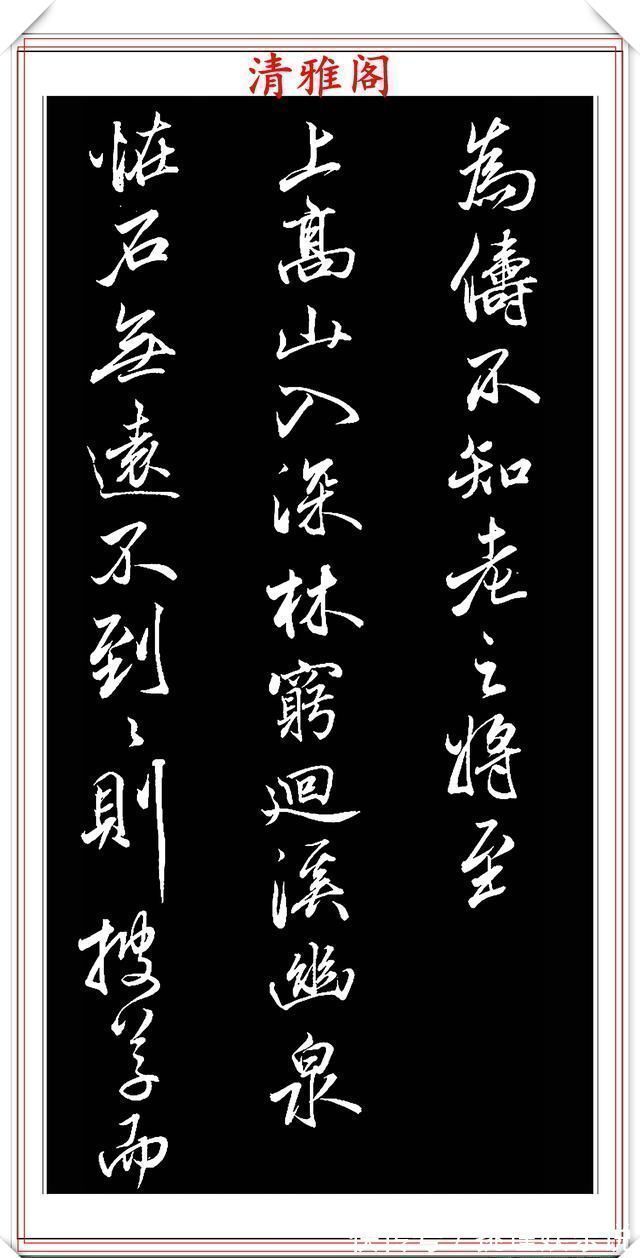 清雅阁
為儔不知老之將至
上髙山入深林窮迴溪幽泉
怪石無遠不到〻則披草而